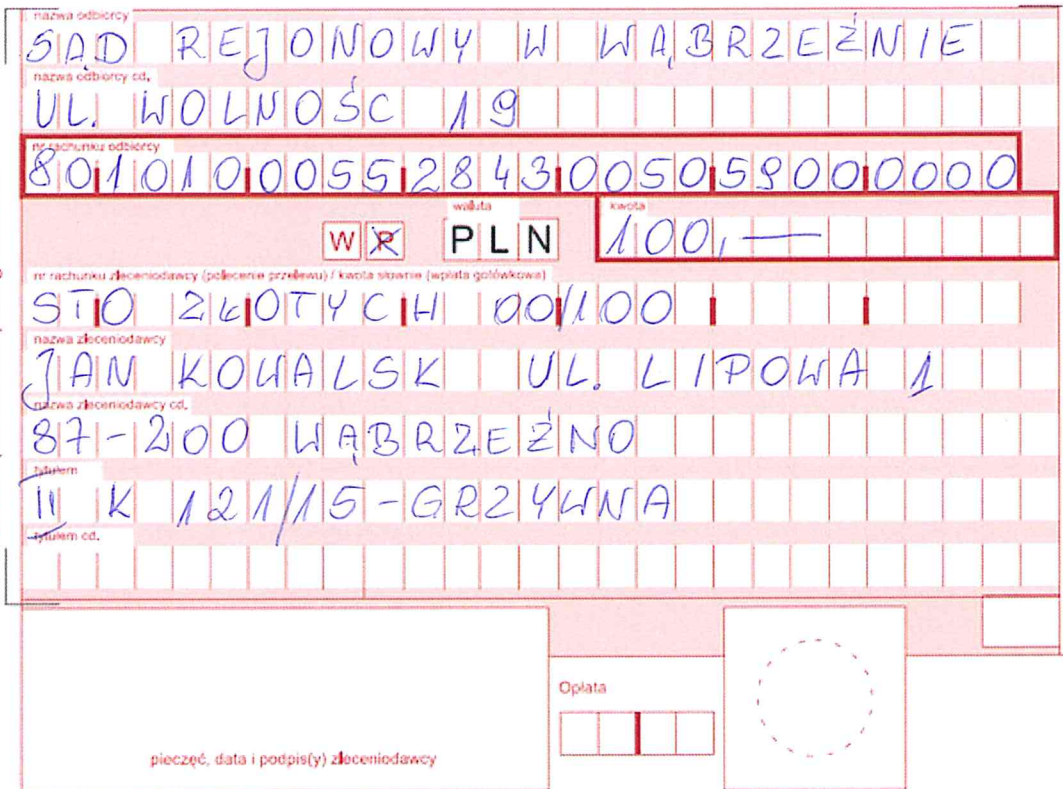 nazwa odbiorcy
SĄD REJONOWY W WĄBRZEŹNIE
nazwa odbiorcy cd.
UL. WOLNOŚC 19
nr rachunku odbiorcy
80101000552843005059000000
waluta kwota
W P PLN 100,—
nr rachunku zleceniodawcy (polecenie przelewu) / kwota słownie (wpłata gotówkowa)
STO ZŁOTYCH 00/100
nazwa zleceniodawcy
JAN KOWALSK UL. LIPOWA 1
nazwa zleceniodawcy cd.
87-200 WĄBRZEŹNO
tytułem
II K 121/15-GRZYWNA
tytułem cd.
Opłata
pieczęć, data i podpis(y) zleceniodawcy